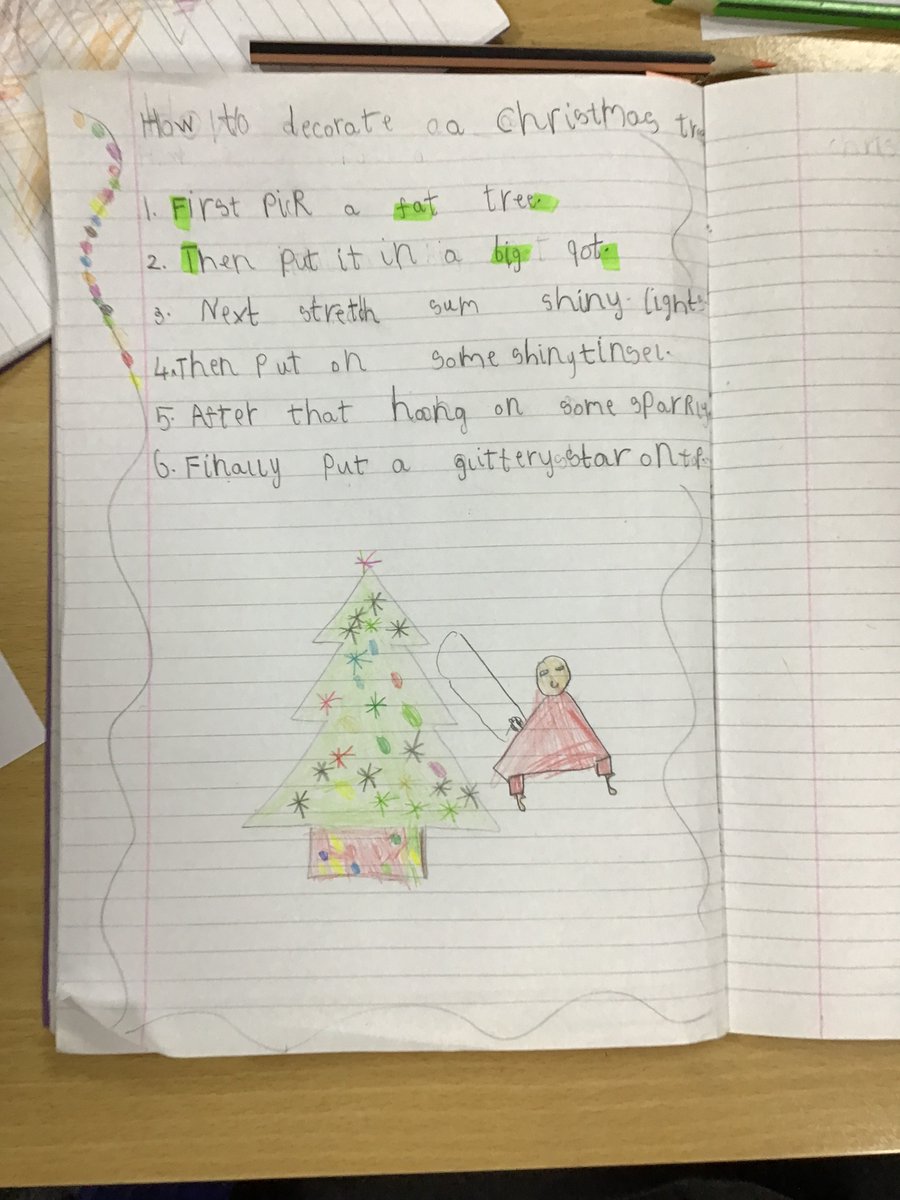 How to decorate a a Christmas tre
1. First pick a fat tree.
2. Then put it in a big qot.
3. Next stretch sum shiny lights
4. Then put on some shiny tinsel.
5. After that hang on some sparkly
6. Finally put a glittery star on top.